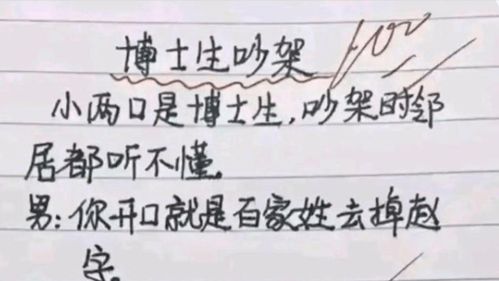 博士生吵架
100
小两口是博士生,吵架时邻
居都听不懂。
男:你开口就是百家姓去掉赵
字。